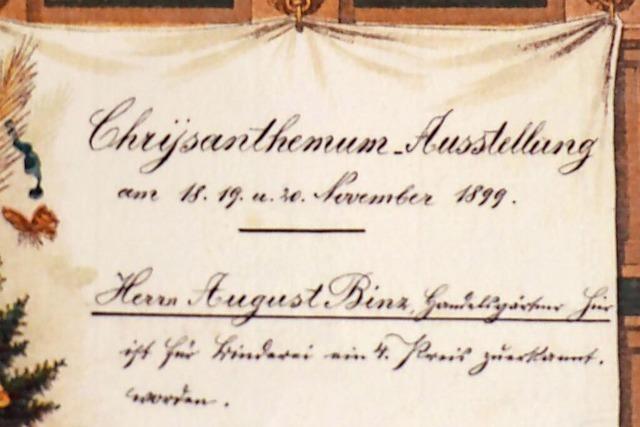 Chrÿsanthemum-Ausstellung
am 18. 19. u. 20. November 1899.
Herrn August Binz, Handelsgärtner hier
ist für Binderei ein 4. Preis zuerkannt
worden.